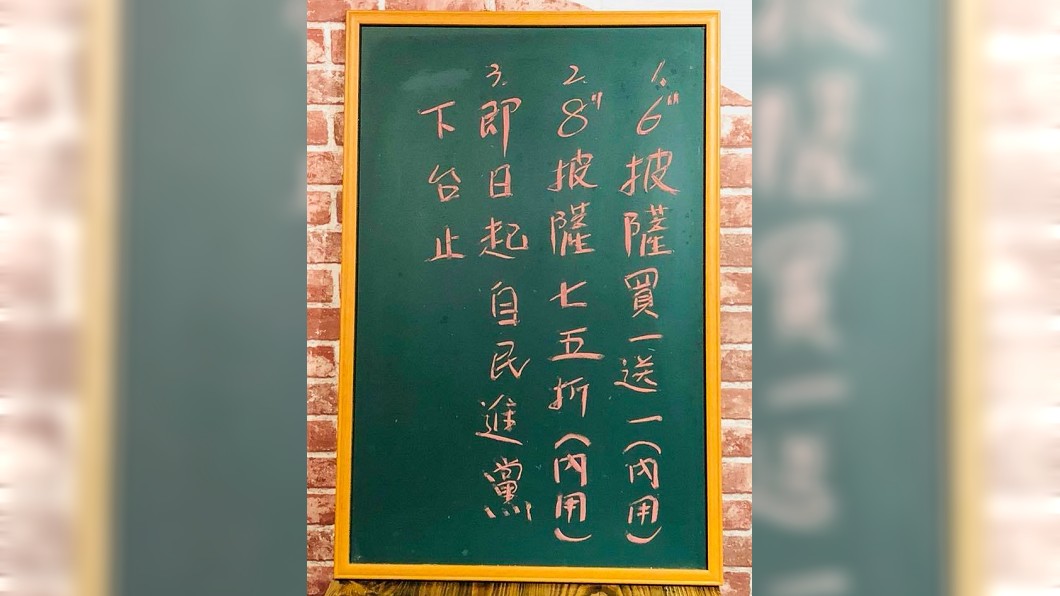 1. 6"披薩買一送一(內用)
2. 8"披薩七五折(內用)
3. 即日起自民進黨
下台止